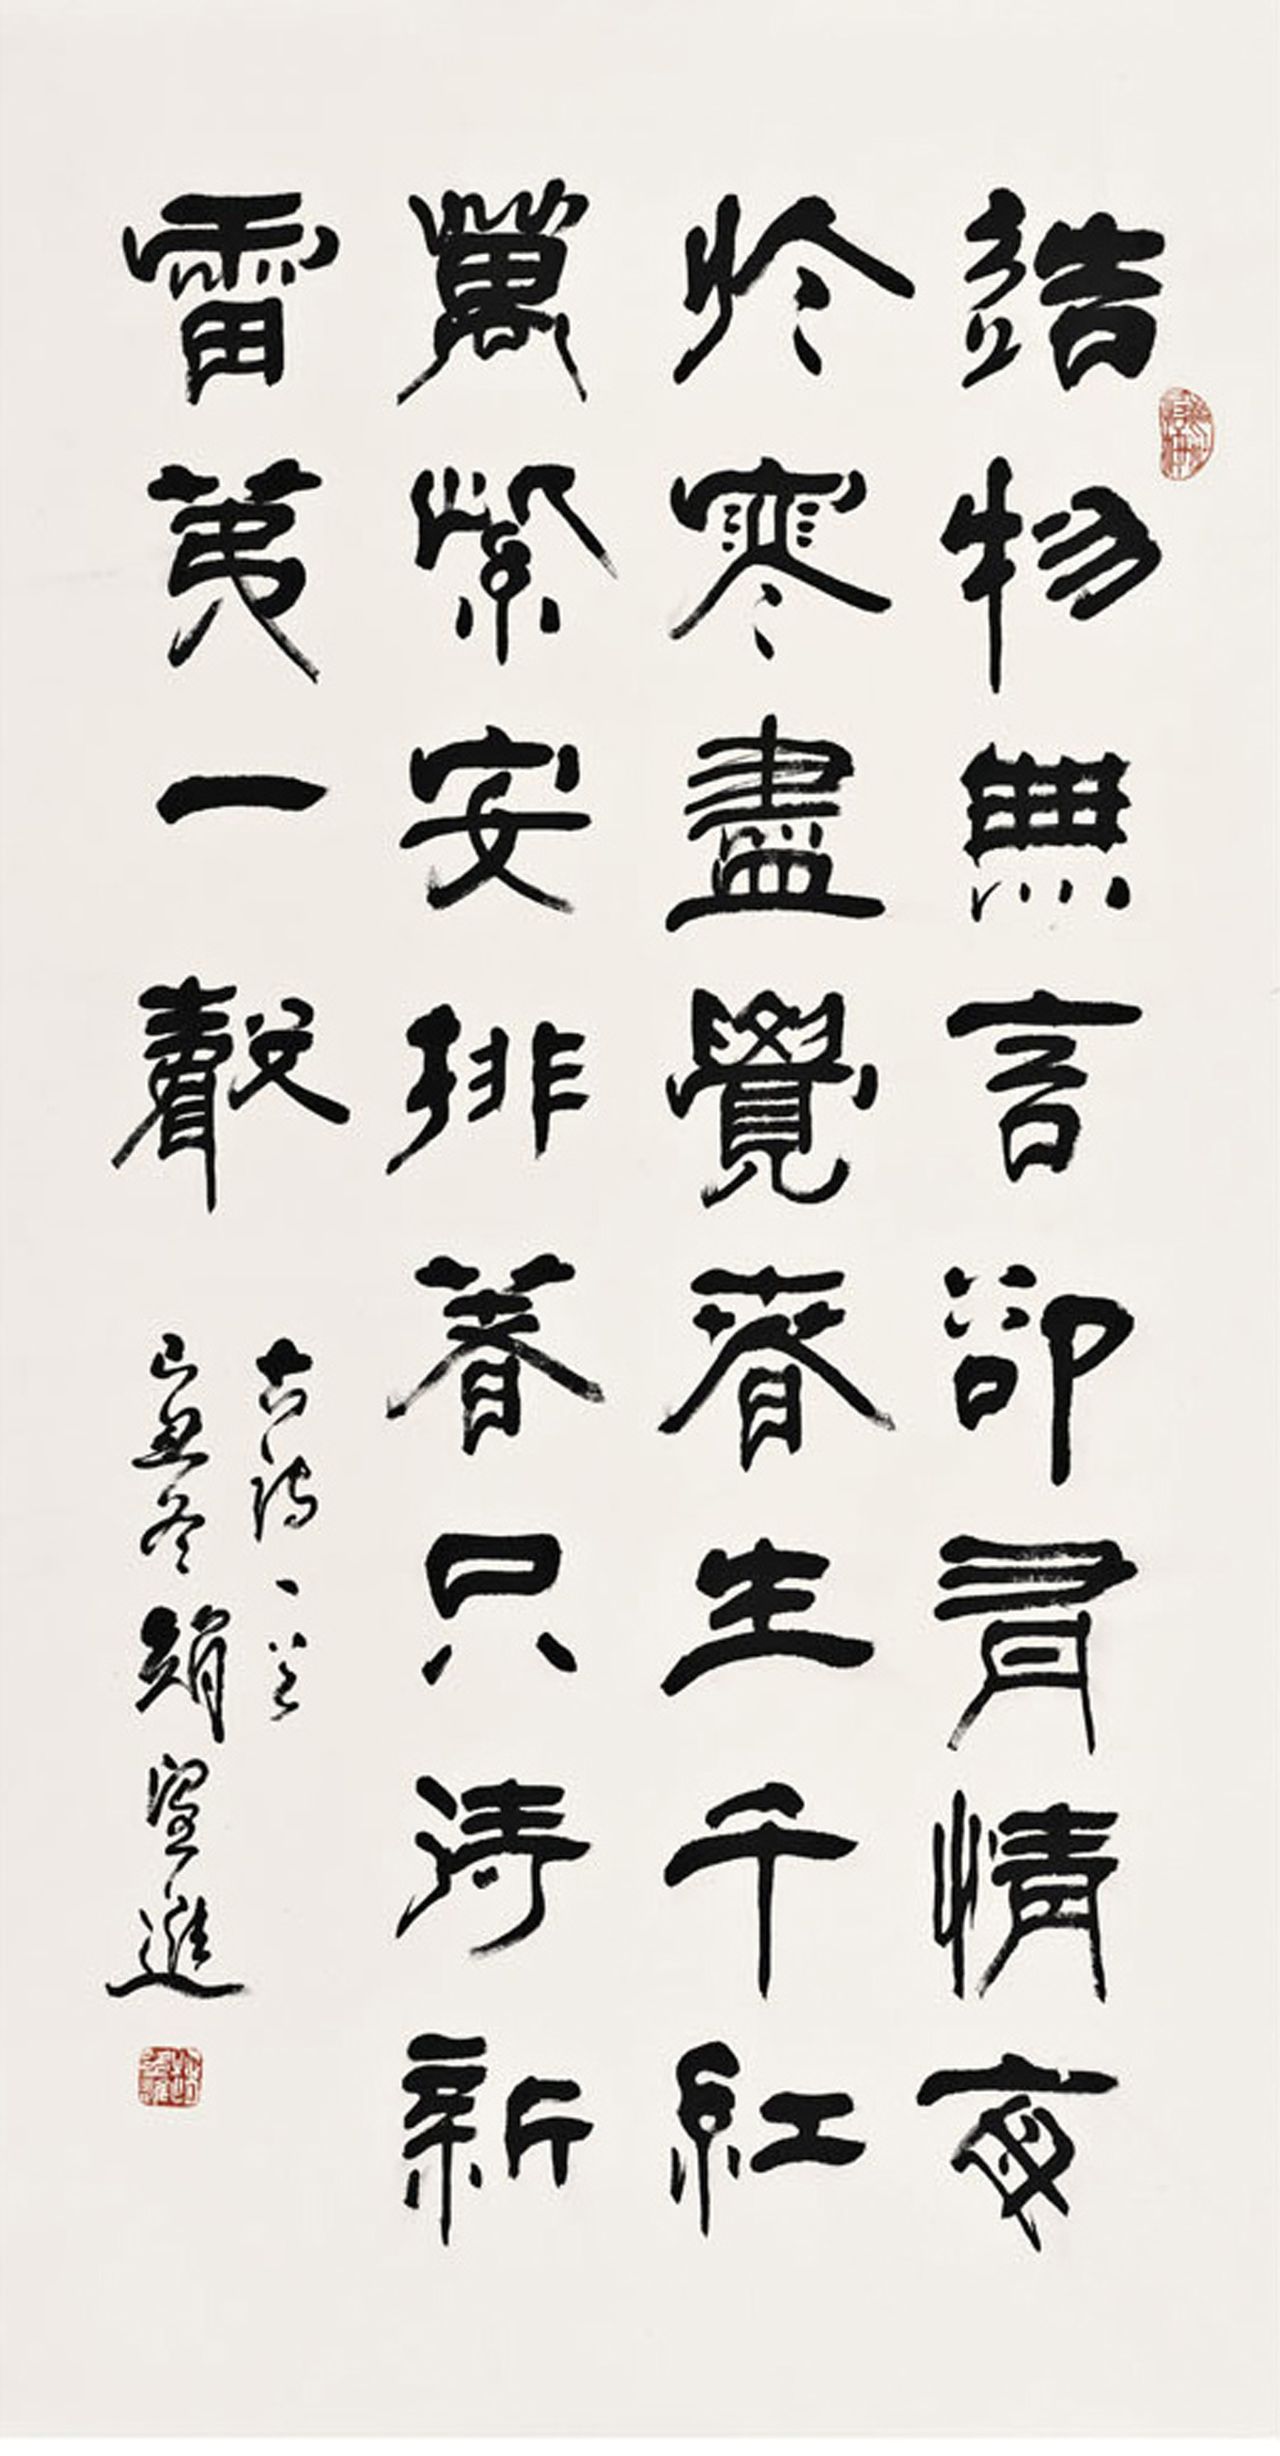 造物無言卻有情每
於寒盡覺春生千紅
萬紫安排著只待新
雷第一聲
古詩一首
己丑冬趙望進